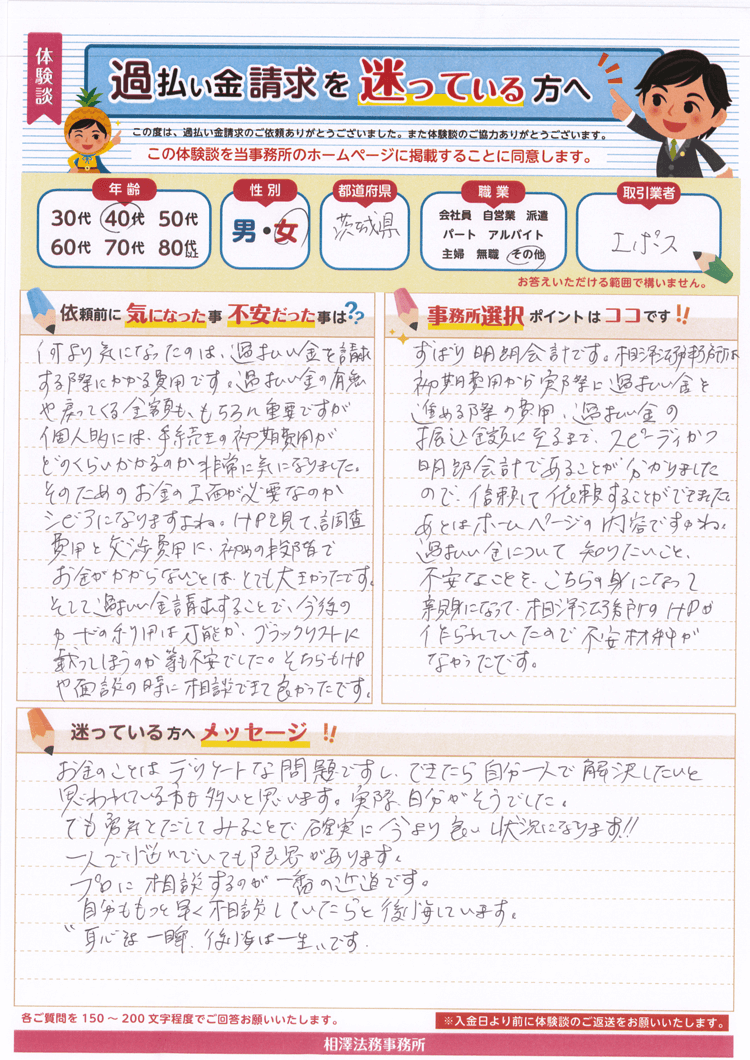 体験談
過払い金請求を迷っている方へ
この度は、過払い金請求のご依頼ありがとうございました。また体験談のご協力ありがとうございます。
この体験談を当事務所のホームページに掲載することに同意します。
年齢
30代 40代 50代
60代 70代 80代以上
性別
男・女
都道府県
茨城県
職業
会社員 自営業 派遣
パート アルバイト
主婦 無職 その他
取引業者
エポス
お答えいただける範囲で構いません。
依頼前に気になった事 不安だった事は??
何より気になったのは、過払い金を請求
する際にかかる費用です。過払い金の有無
や戻ってくる金額も、もちろん重要ですが
個人的には、手続上の初期費用が
どのくらいかかるのか非常に気になりました。
そのためのお金の工面が必要なのか
シビアになりますよね。HPを見て、調査
費用と交渉費用に、初めの段階で
お金がかからないことは、とても大きかったです。
そして過払い金請求することで、今後の
カードの利用は可能か、ブラックリストに
載ってしまうのか等も不安でした。そちらもHP
や面談の時に相談できて良かったです。
事務所選択ポイントはココです!!
ずばり明朗会計です。相澤法務事務所は
初期費用から実際に過払い金を
進める際の費用、過払い金の
振込金額に至るまで、スピーディかつ
明朗会計であることが分かりました
ので、信頼して依頼することができました。
あとはホームページの内容ですかね。
過払い金について知りたいこと、
不安なことを、こちらの身になって
親身になって、相澤法務事務所のHPが
作られていたので不安材料が
なかったです。
迷っている方へメッセージ!!
お金のことはデリケートな問題ですし、できたら自分一人で解決したいと
思われている方も多いと思います。実際自分がそうでした。
でも勇気をだしてみることで確実に今より良い状況になります!!
一人で悩んでいても限界があります。
プロに相談するのが一番の近道です。
自分ももっと早く相談していたらと後悔しています。
"恥は一瞬、後悔は一生"です。
各ご質問を150〜200文字程度でご回答お願いいたします。
※入金日より前に体験談のご返送をお願いいたします。
相澤法務事務所